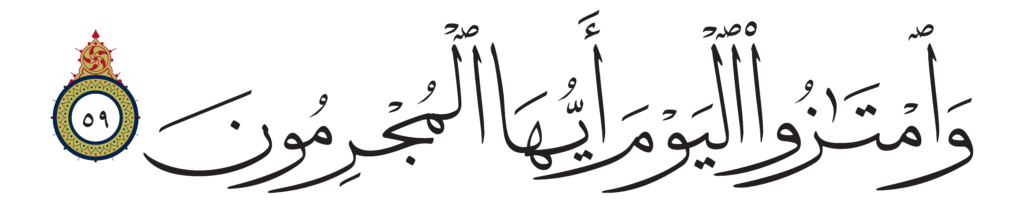 وَٱمْتَـٰزُوا۟ ٱلْيَوْمَ أَيُّهَا ٱلْمُجْرِمُونَ ٥٩